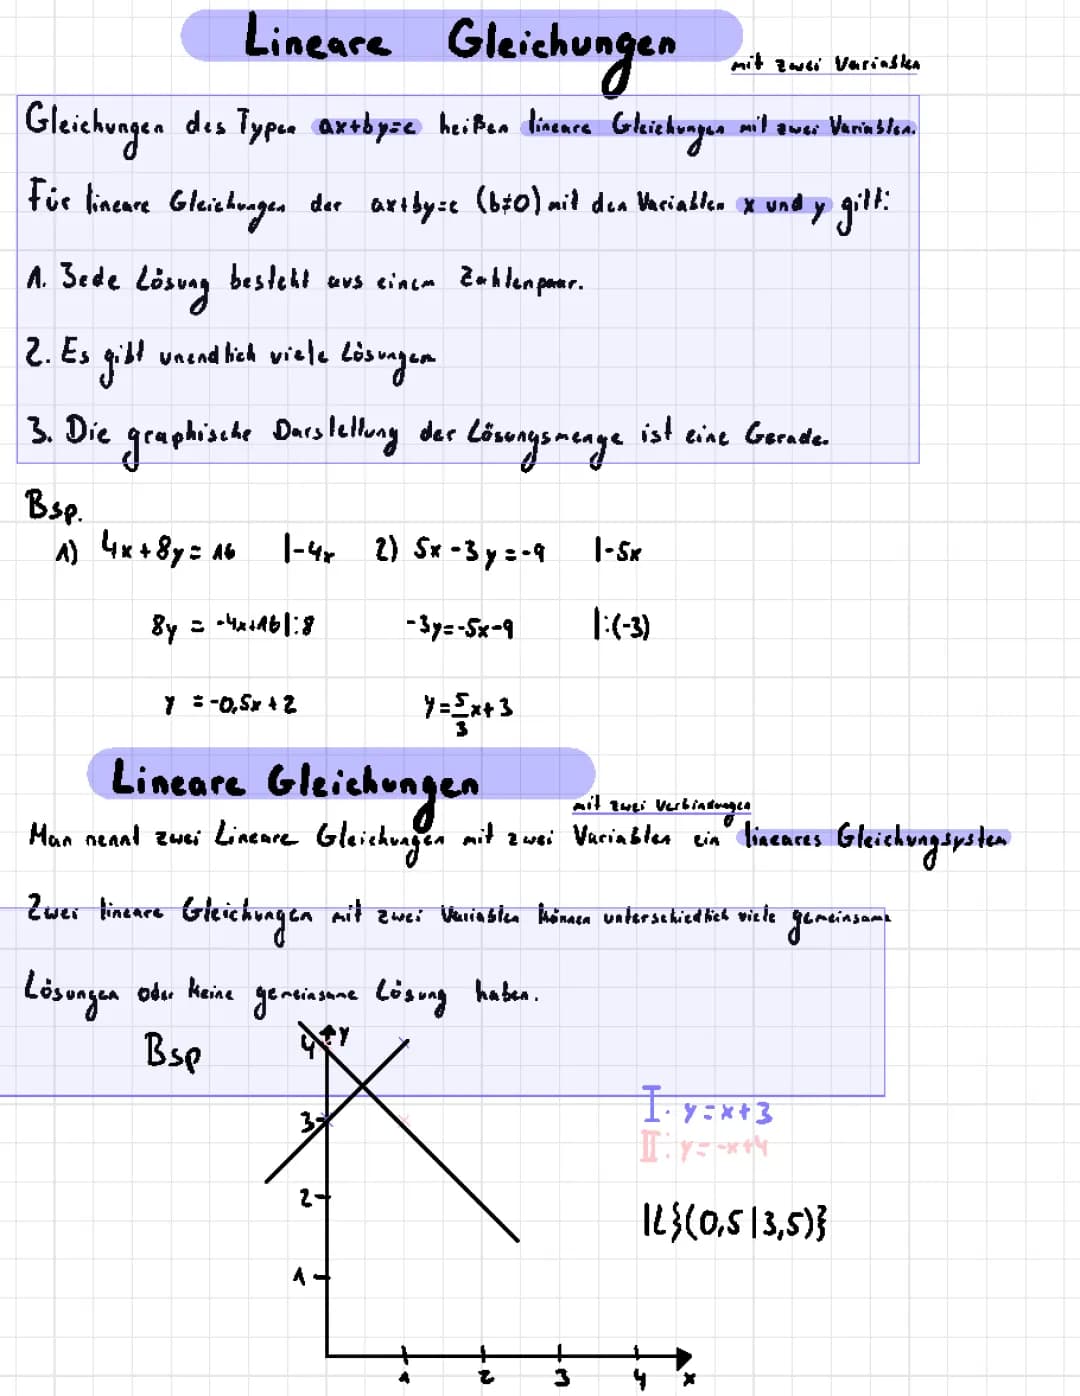 Lineare Gleichungen
mit zwei Variablen
Gleichungen des Typen ax+by=c heißen lineare Gleichungen mit zwei Variablen.
Für lineare Gleichungen der ax+by=c (b≠0) mit den Variablen x und y gilt:
1. Jede Lösung besteht aus einem Zahlenpaar.
2. Es gibt unendlich viele Lösungen
3. Die graphische Darstellung der Lösungsmenge ist eine Gerade.
Bsp.
1) 4x+8y=16 |-4x 2) 5x-3y=-9 |-5x
8y = -4x+16 |:8 -3y=-5x-9 |:(-3)
y = -0,5x+2 y=5/3x+3
Lineare Gleichungen
mit zwei Verbindungen
Man nennt zwei Lineare Gleichungen mit zwei Variablen ein lineares Gleichungsysten
Zwei lineare Gleichungen mit zwei Variablen können unterschiedlich viele gemeinsame
Lösungen oder keine gemeinsame Lösung haben.
Bsp
4 y
I. y=x+3
3
II: y=-x+4
2
|L}(0,5|3,5)}
1
1 2 3 4 x